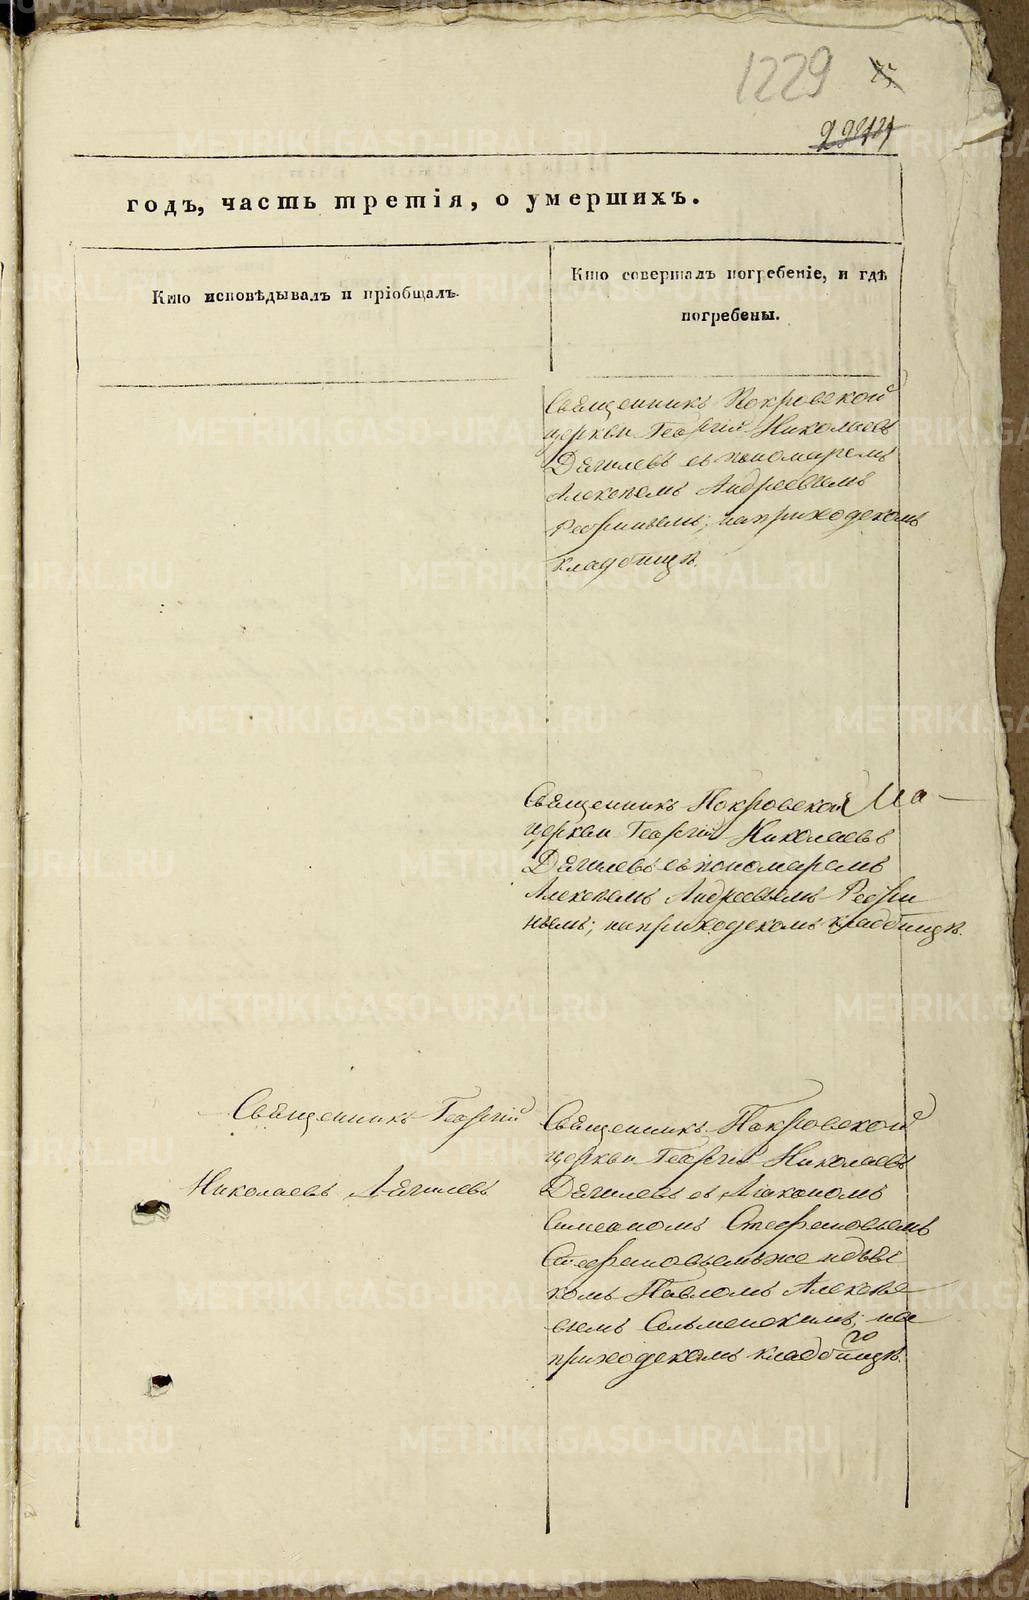 1229
годъ, часть третія, о умершихъ.
Кто исповѣдывалъ и пріобщалъ.
Кто совершалъ погребеніе, и гдѣ
погребены.
Священникъ Покровской
церкви Георгій Николаевъ
Дягилевъ съ пономаремъ
Алексѣемъ Андреевымъ
на приходскомъ
кладбищѣ.
Священникъ Покровской
церкви Георгій Николаевъ
Дягилевъ съ пономаремъ
Алексѣемъ Андреевымъ
нымъ; на приходскомъ кладбищѣ.
Священникъ Георгій
Николаевъ Дягилевъ
Священникъ Покровской
церкви Георгій Николаевъ
Дягилевъ съ Діакономъ
Симеономъ Стефановымъ
Стефановымъ же и дьяч
комъ Павломъ Алексѣе
вымъ на
приходскомъ кладбищѣ.
METRIKI.GASO-URAL.RU